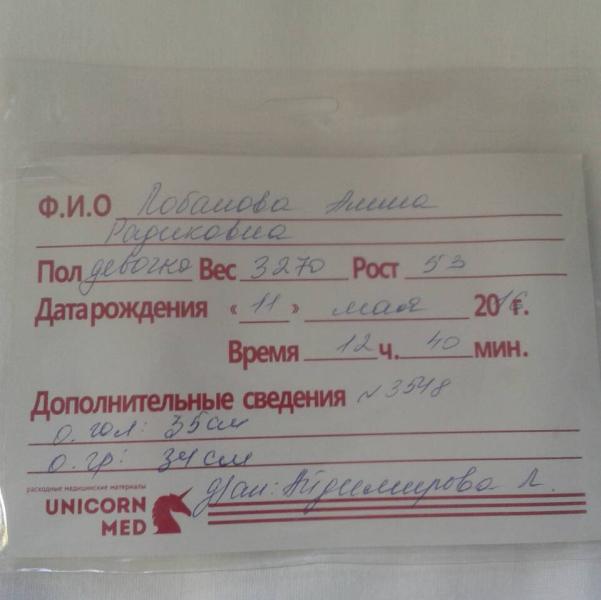 Ф.И.О Лобанова Амина
Радиковна
Пол девочка Вес 3270 Рост 53
Дата рождения «11» мая 2016г.
Время 12 ч. 40 мин.
Дополнительные сведения № 3548
о. гол: 35см
о. гр: 34см
расходные медицинские материалы
UNICORN
MED
Айдимирова Л.